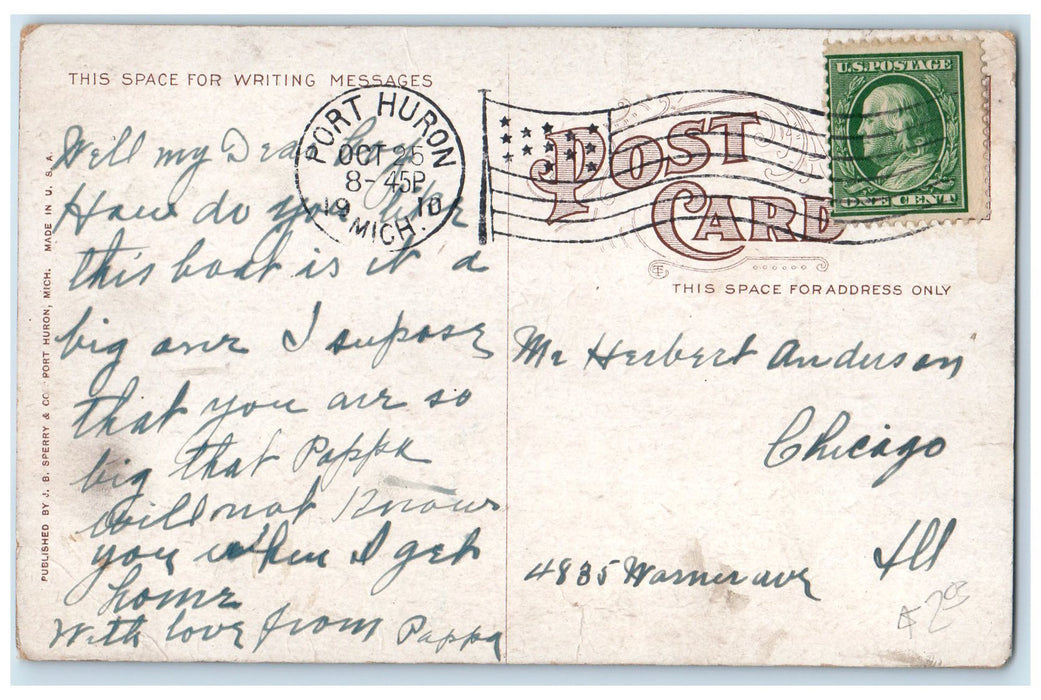 THIS SPACE FOR WRITING MESSAGES
Well my Dear
How do you like
this boat is it a
big one I supose
that you are so
big that Pappa
will not Know
you when I get
home
With love from Pappa
PUBLISHED BY J. B. SPERRY & CO. PORT HURON, MICH. MADE IN U. S. A.
PORT HURON
OCT 25
8-45P
1910
MICH.
POST
CARD
U.S. POSTAGE
ONE CENT
THIS SPACE FOR ADDRESS ONLY
Mr Herbert Anderson
Chicago
Ill
4835 Warner ave